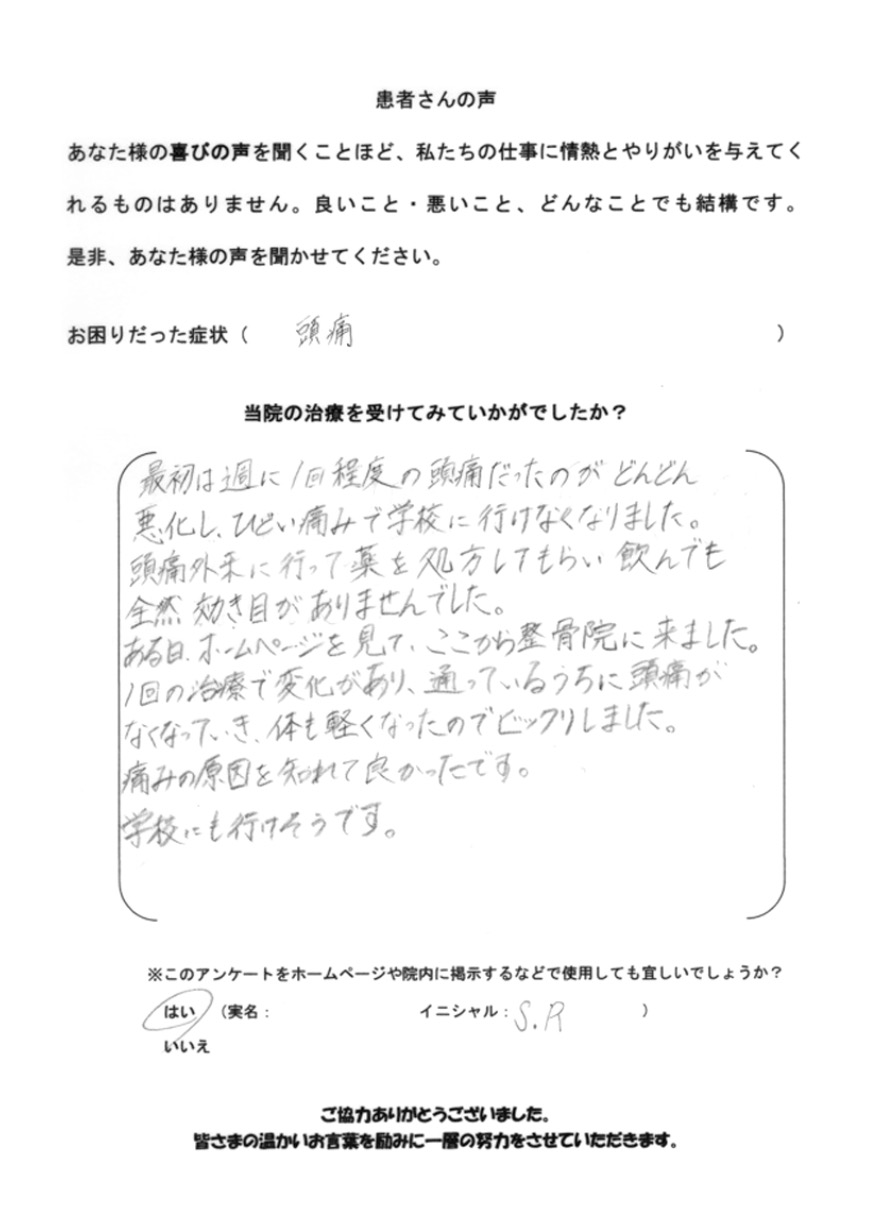 患者さんの声
あなた様の喜びの声を聞くことほど、私たちの仕事に情熱とやりがいを与えてく
れるものはありません。良いこと・悪いこと、どんなことでも結構です。
是非、あなた様の声を聞かせてください。
お困りだった症状（ 頭痛 ）
当院の治療を受けてみていかがでしたか？
最初は週に1回程度の頭痛だったのがどんどん
悪化し、ひどい痛みで学校に行けなくなりました。
頭痛外来に行って薬を処方してもらい飲んでも
全然効き目がありませんでした。
ある日、ホームページを見て、ここから整骨院に来ました。
1回の治療で変化があり、通っているうちに頭痛が
なくなっていき、体も軽くなったのでビックリしました。
痛みの原因を知れて良かったです。
学校にも行けそうです。
※このアンケートをホームページや院内に掲示するなどで使用しても宜しいでしょうか？
はい （実名： イニシャル：S.R ）
いいえ
ご協力ありがとうございました。
皆さまの温かいお言葉を励みに一層の努力をさせていただきます。